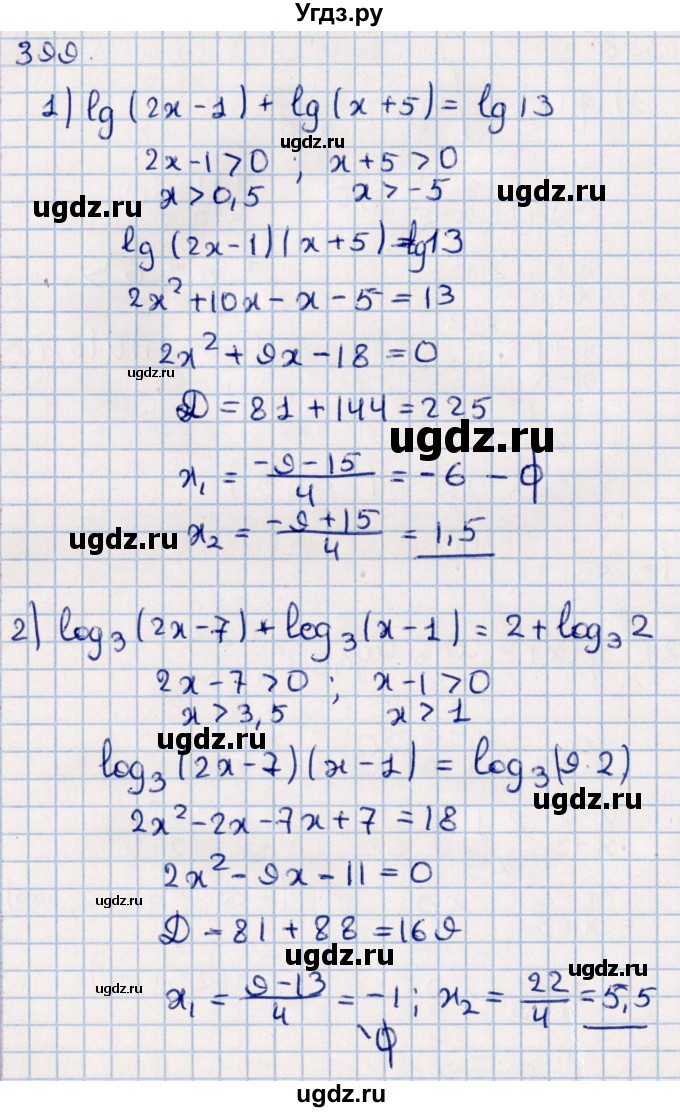 Угдз.ру
399.
1) lg (2x-1) + lg (x+5) = lg 13
ugdz.ru
2x-1>0 ; x+5>0
x>0,5 x>-5
ugdz.ru
ugdz.ru
lg (2x-1)(x+5) = lg 13
2x²+10x-x-5=13
2x²+9x-18=0
ugdz.ru
D=81+144=225
ugdz.ru
x₁ = (-9-15)/4 = -6 - ϕ
x₂ = (-9+15)/4 = 1,5
ugdz.ru
2) log₃(2x-7) + log₃(x-1) = 2+log₃2
2x-7>0 ; x-1>0
x>3,5 x>1
ugdz.ru
log₃(2x-7)(x-1) = log₃(9·2)
ugdz.ru
2x²-2x-7x+7=18
2x²-9x-11=0
ugdz.ru
D-81+88=169
ugdz.ru
ugdz.ru
ugdz.ru
x₁ = (9-13)/4 = -1; x₂ = 22/4 = 5,5
ϕ
ugdz.ru